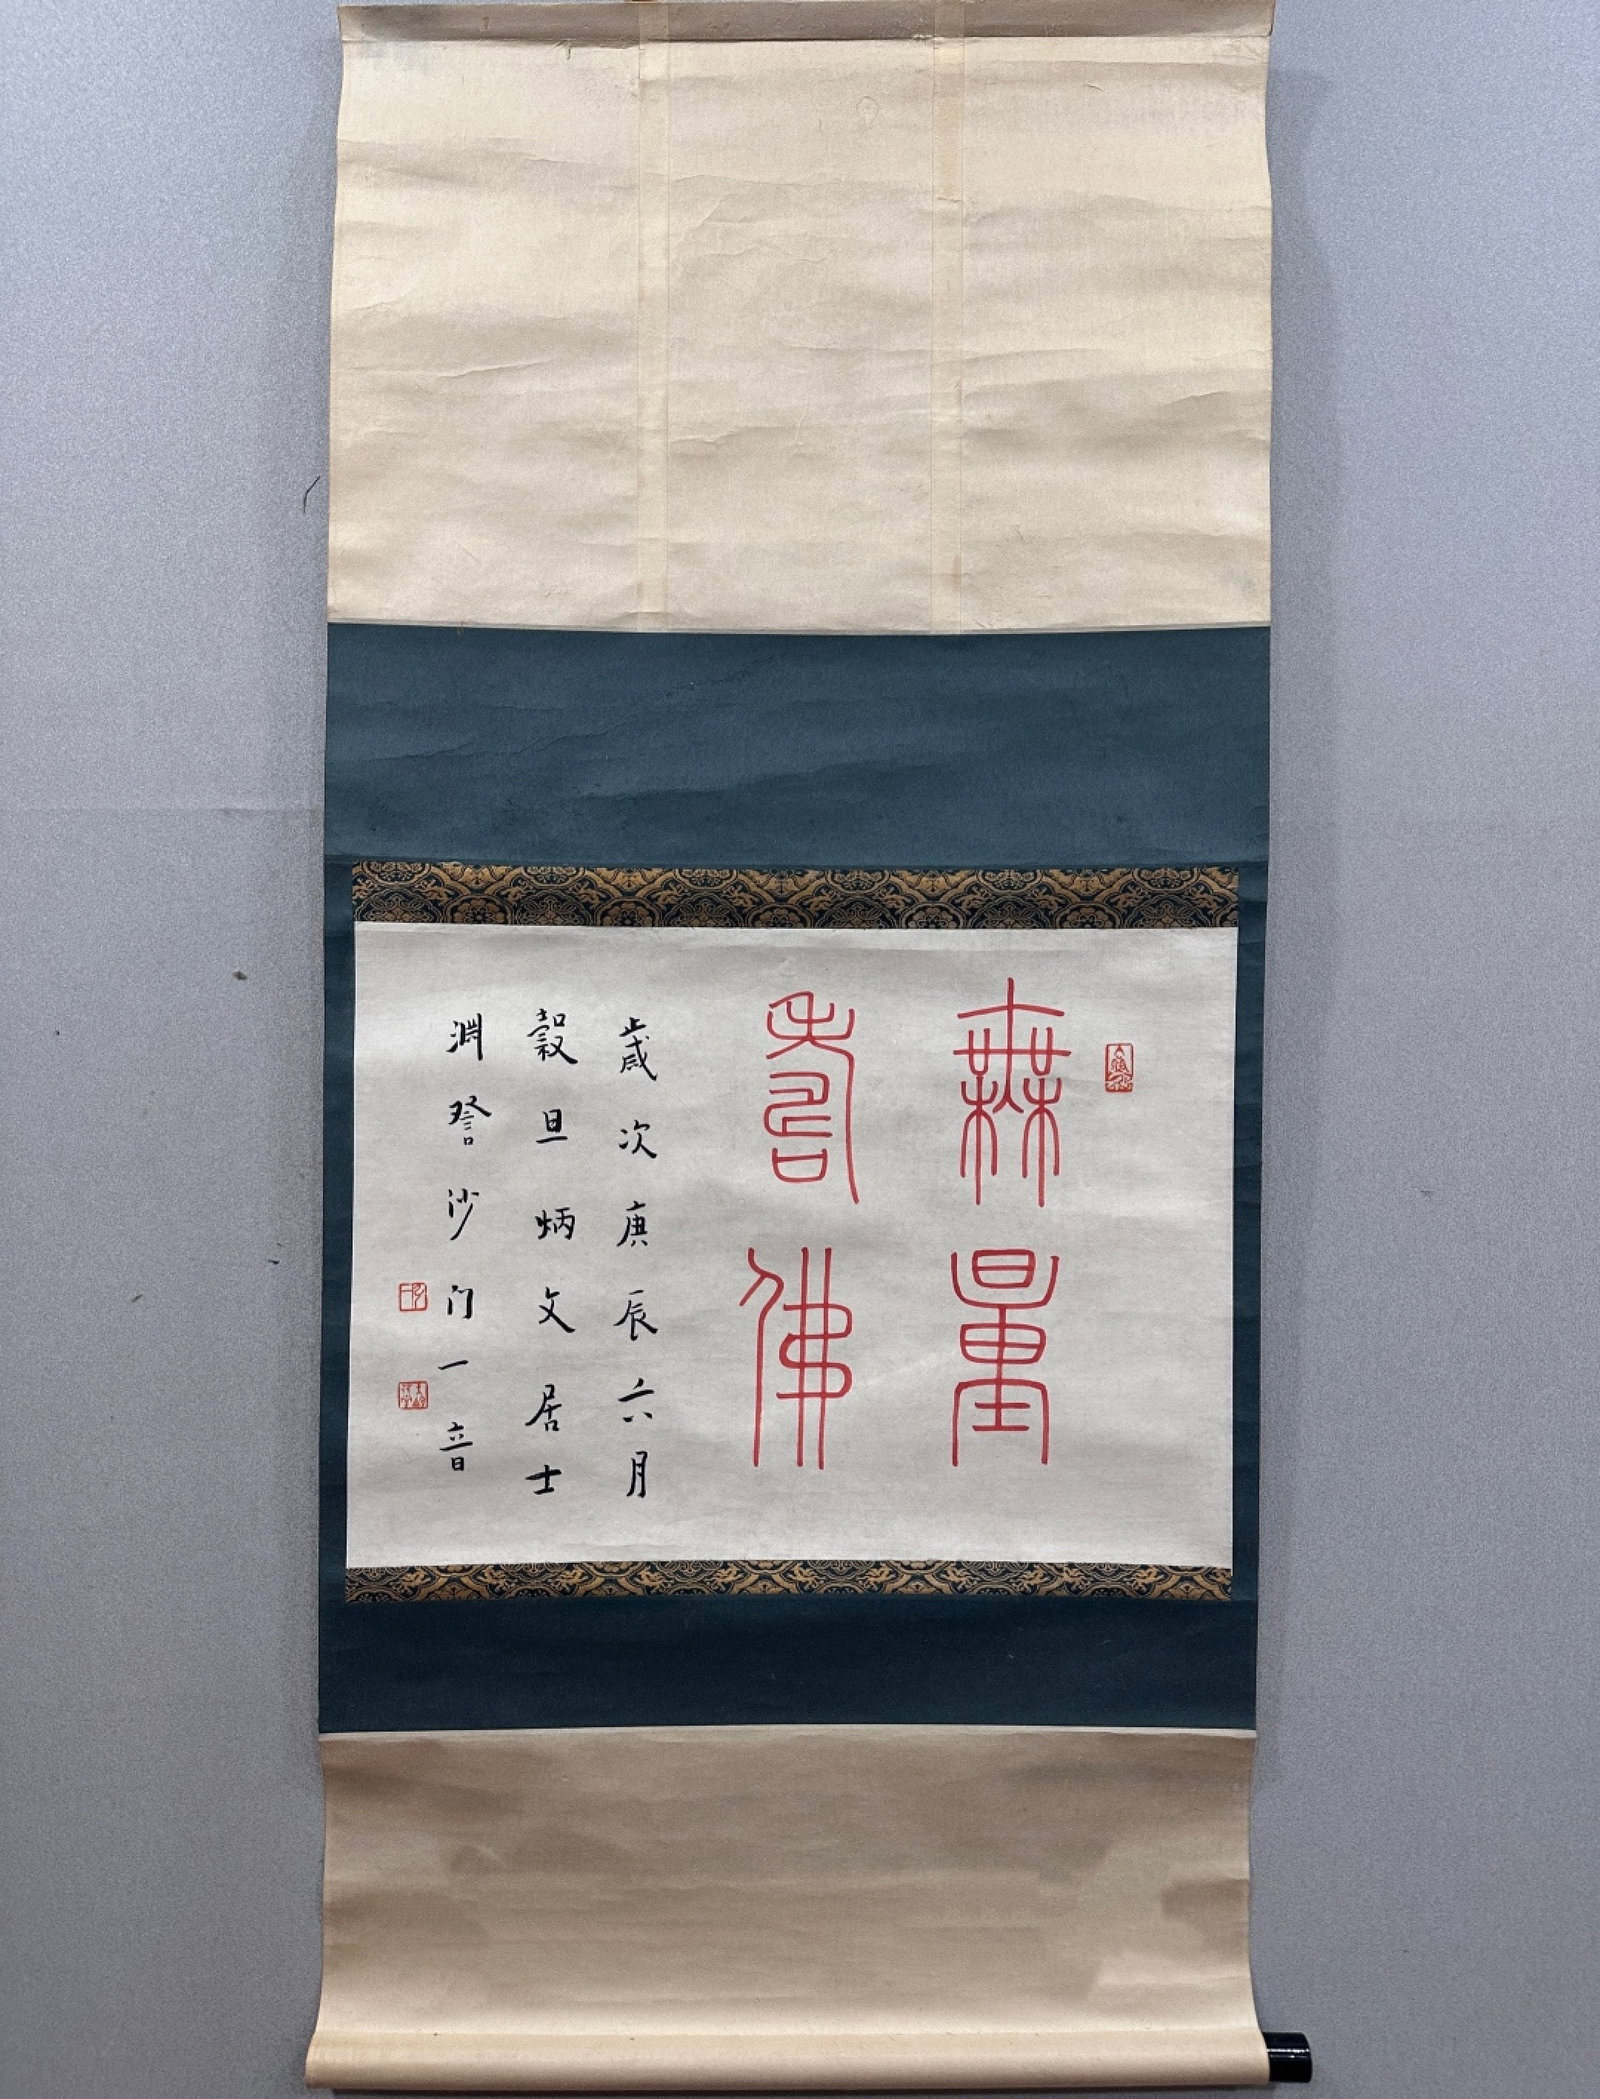 無量
壽佛
歲次庚辰六月
穀旦炳文居士
淵詧沙门一音